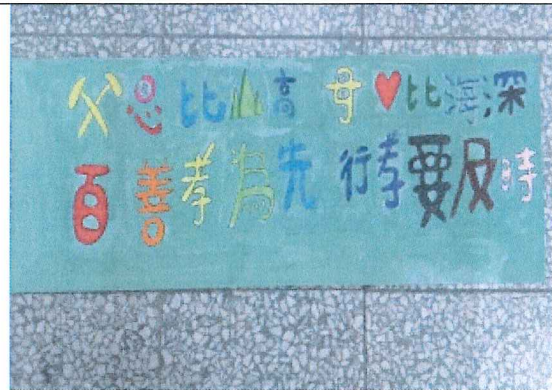 父恩比山高 母❤比海深
百善孝為先 行孝要及時